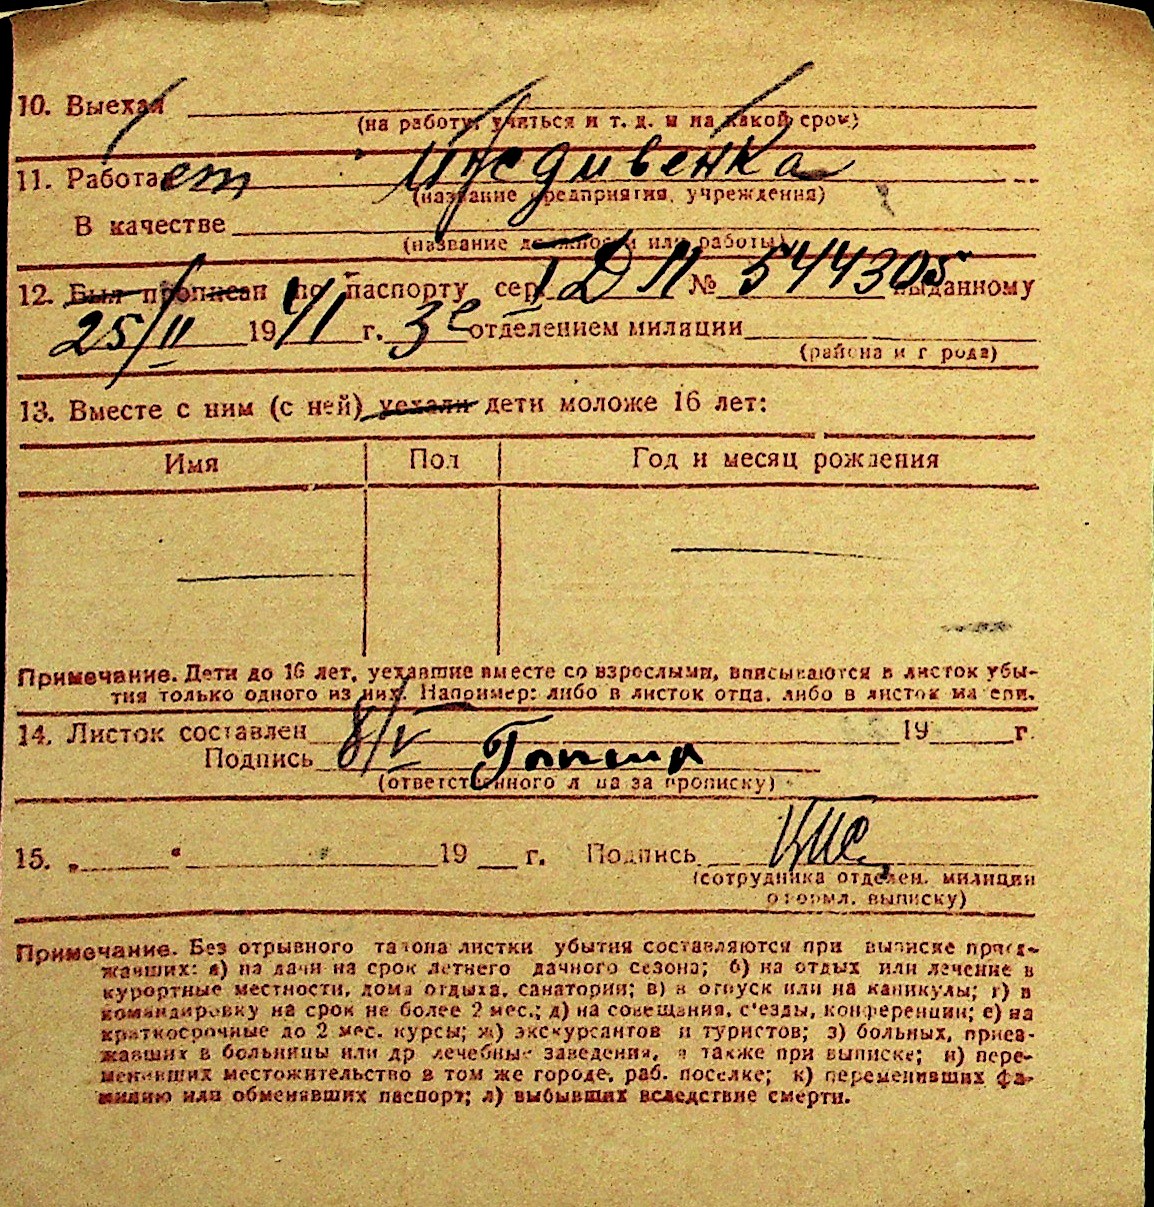 10. Выехал
(на работу, учиться и т. д. и на какой срок)
11. Работает Иждивенка
(название предприятия, учреждения)
В качестве
(название должности или работы)
12. Был прописан по паспорту сер. I ДП № 544305 выданному
25/II 1941 г. 3е отделением милиции
(района и города)
13. Вместе с ним (с ней) уехали дети моложе 16 лет:
Имя Пол Год и месяц рождения
Примечание. Дети до 16 лет, уехавшие вместе со взрослыми, вписываются в листок убы-
тия только одного из них. Например: либо в листок отца, либо в листок матери.
14. Листок составлен 8/V 19 г.
Подпись
(ответственного лица за прописку)
15. „ “ 19 г. Подпись
(сотрудника отделен. милиции
оформл. выписку)
Примечание. Без отрывного талона листки убытия составляются при выписке приез-
жавших: а) на дачи на срок летнего дачного сезона; б) на отдых или лечение в
курортные местности, дома отдыха, санатории; в) в отпуск или на каникулы; г) в
командировку на срок не более 2 мес.; д) на совещания, с'езды, конференции; е) на
краткосрочные до 2 мес. курсы; ж) экскурсантов и туристов; з) больных, приез-
жавших в больницы или др лечебные заведения, а также при выписке; и) пере-
менивших местожительство в том же городе, раб. поселке; к) переменивших фа-
милию или обменявших паспорт; л) выбывших вследствие смерти.